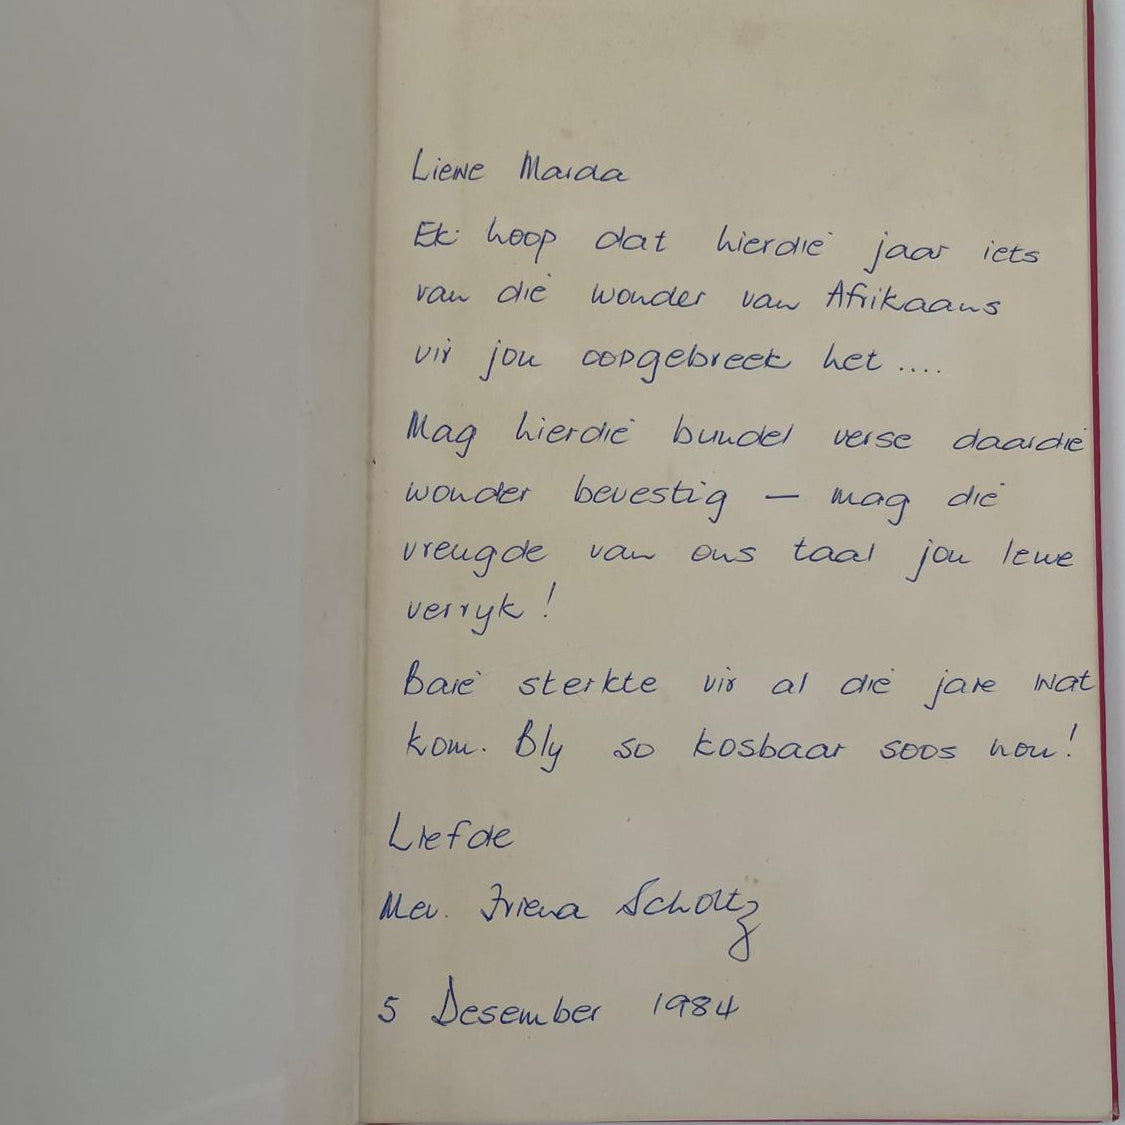 Liewe Maida
Ek hoop dat hierdie jaar iets
van die wonder van Afrikaans
vir jou oopgebreek het ....
Mag hierdie bundel verse daardie
wonder bevestig — mag die
vreugde van ons taal jou lewe
verryk!
Baie sterkte vir al die jare wat
kom. Bly so kosbaar soos nou!
Liefde
Mev. Friena Scholtz
5 Desember 1984